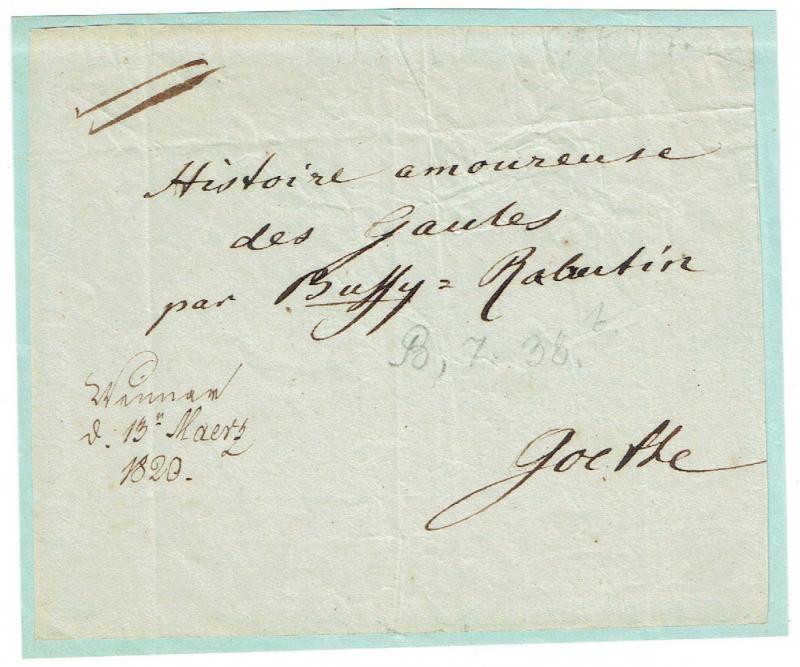 Histoire amoureuse
des Gaules
par Bussy = Rabutin
B, 7. 38. b.
Weimar
d. 13n Maerz
1820.
Goethe